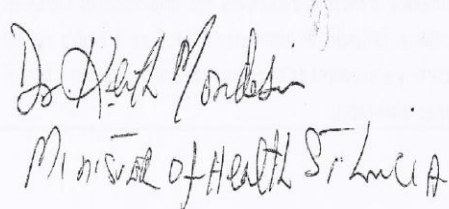 Dr Keith Mondesir
Minister of Health St. Lucia